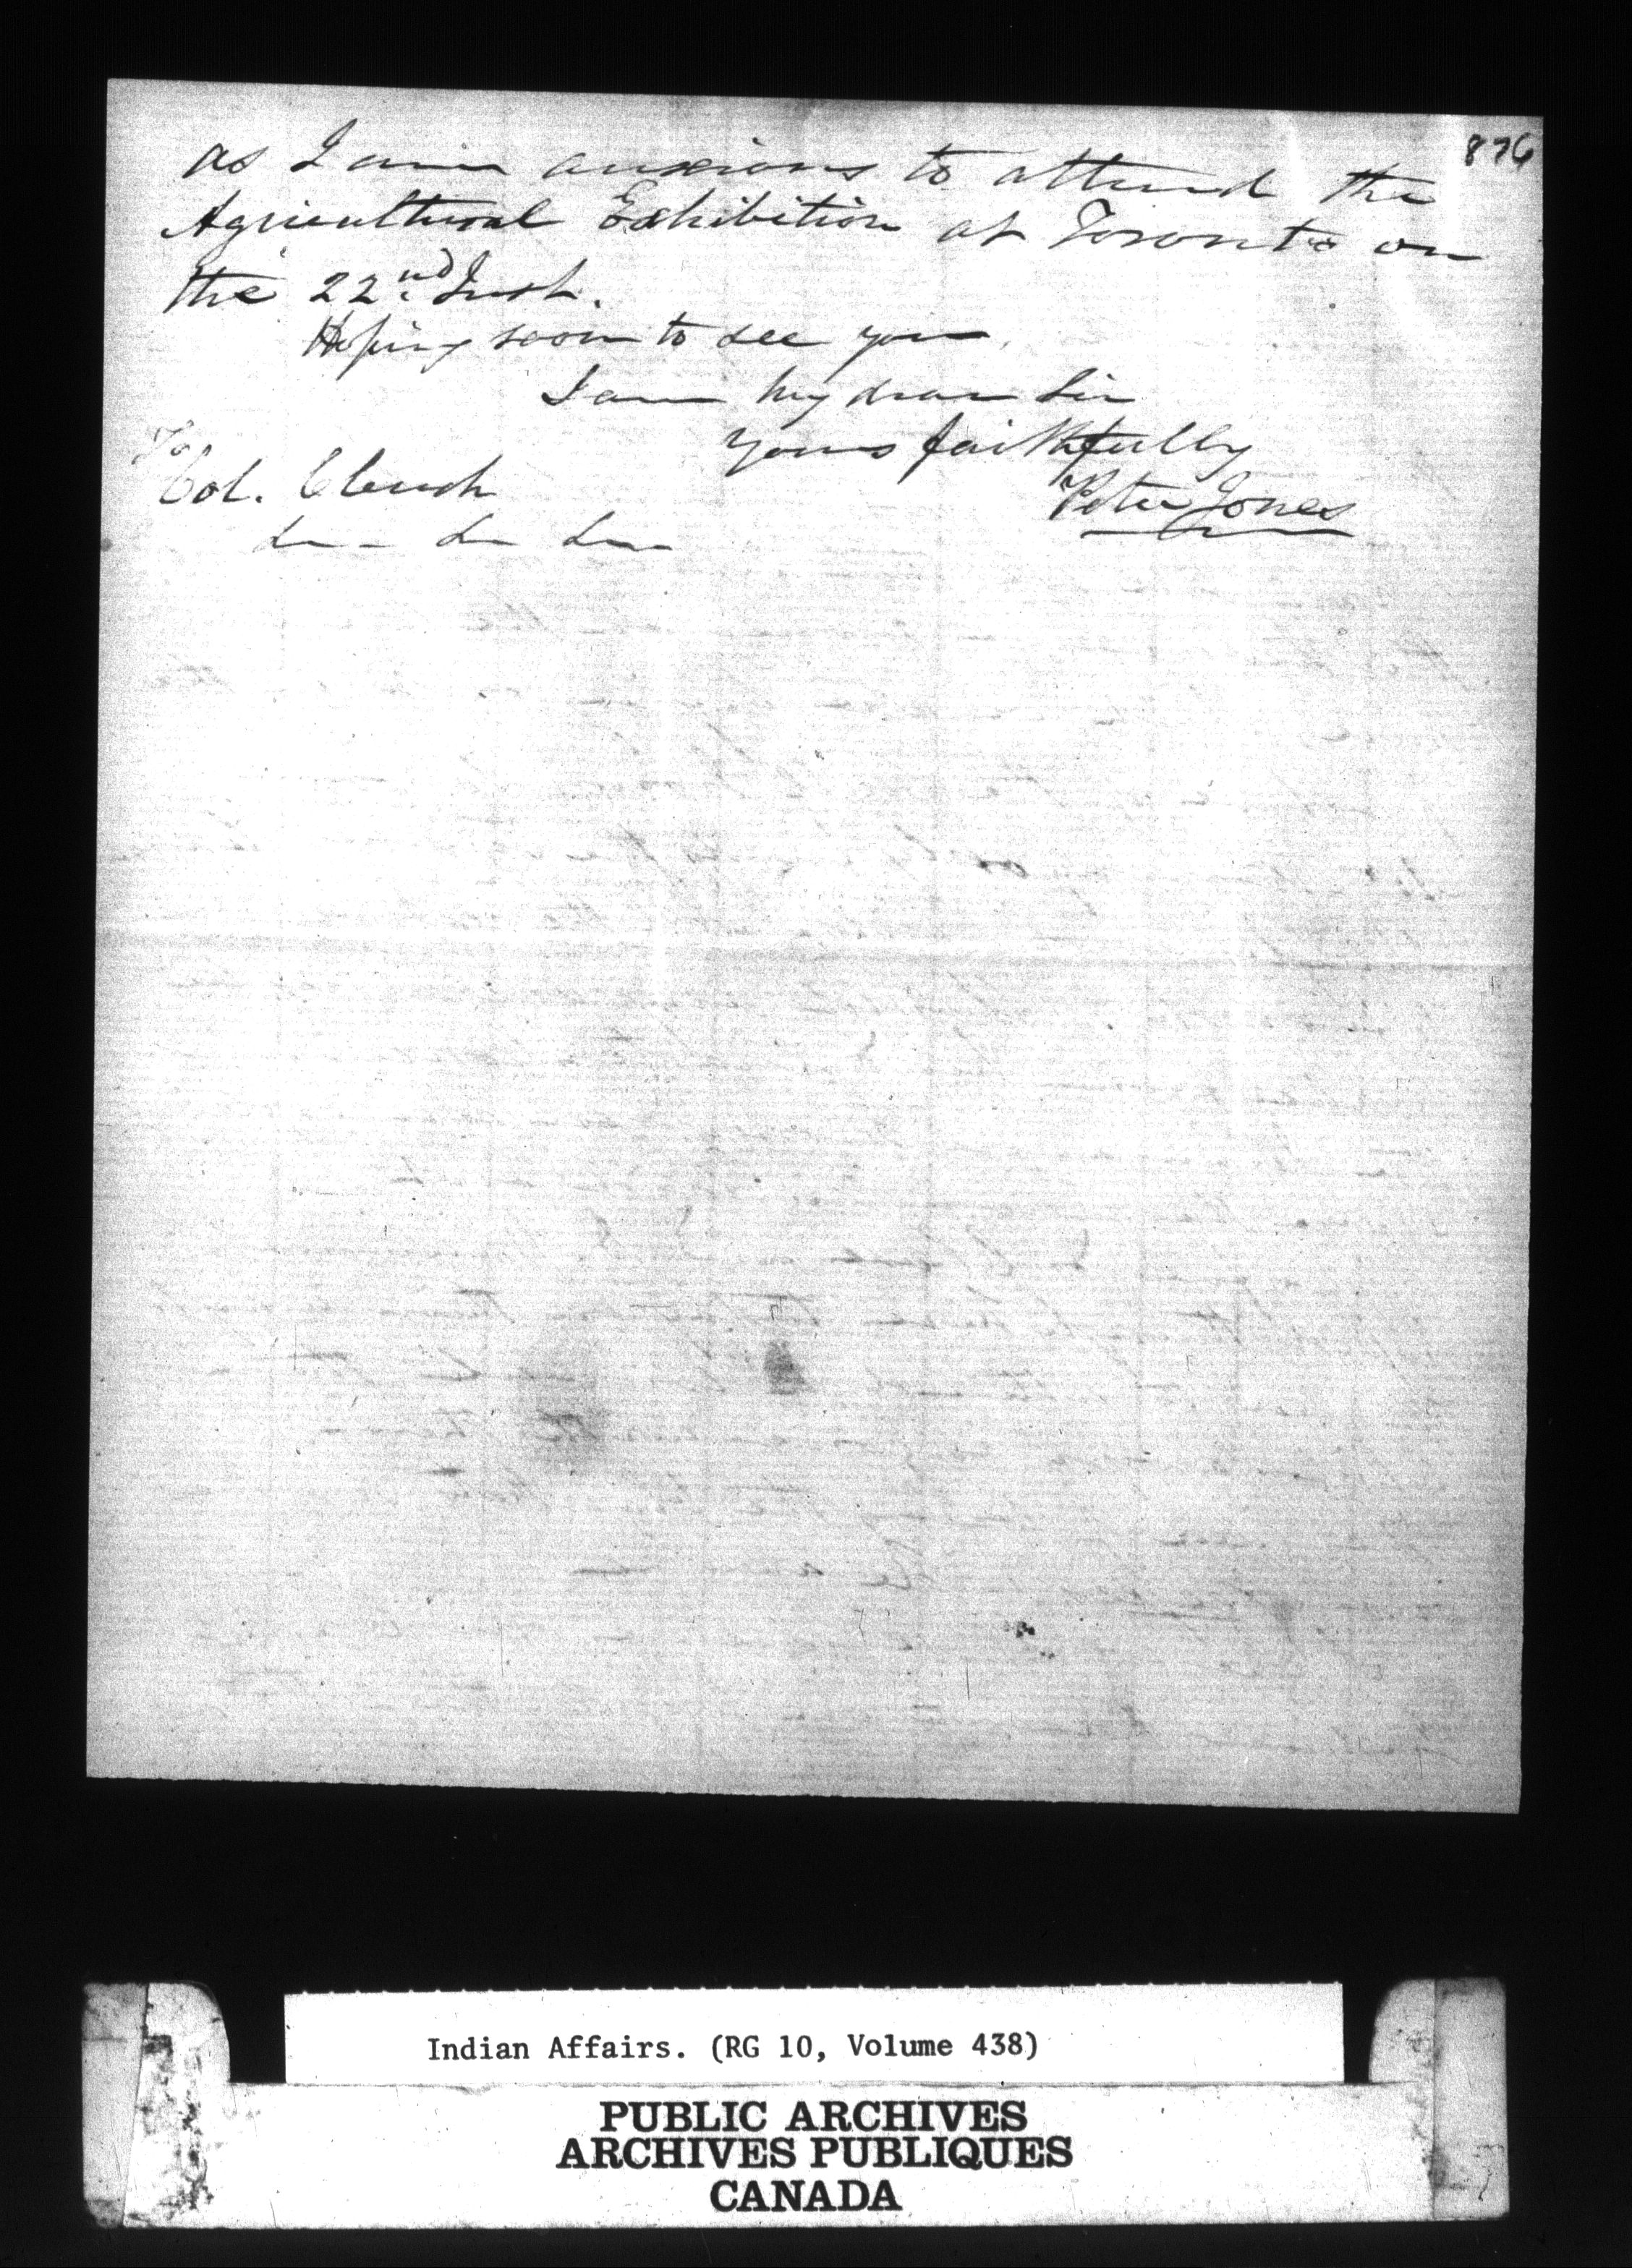 876
as I am anxious to attend the
Agricultural Exhibition at Toronto on
the 22nd Inst.
Hoping soon to see you,
I am my dear Sir
Yours faithfully
Peter Jones
To
Col. Clench
&c &c &c
Indian Affairs. (RG 10, Volume 438)
PUBLIC ARCHIVES
ARCHIVES PUBLIQUES
CANADA